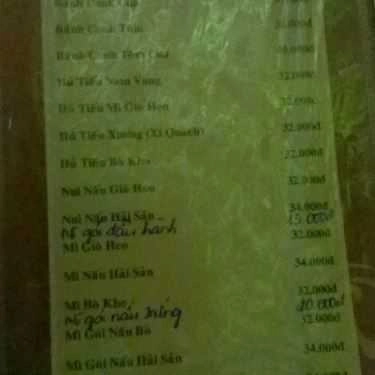 Bánh Canh Cua
Bánh Canh Tôm
Bánh Canh Tôm Cua
Hủ Tiếu Nam Vang 32.000đ
Hủ Tiếu Mì Giò Heo 32.000đ
Hủ Tiếu Xương (Xí Quách) 32.000đ
Hủ Tiếu Bò Kho 32.000đ
Nui Nấu Giò Heo 32.000đ
Nui Nấu Hải Sản 34.000đ
Mì gói 15.000đ
Mì Giò Heo 32.000đ
Mì Nấu Hải Sản 34.000đ
Mì Bò Kho 32.000đ
Mì gói nấu trứng 20.000đ
Mì Gói Nấu Bò 32.000đ
Mì Gói Nấu Hải Sản 34.000đ